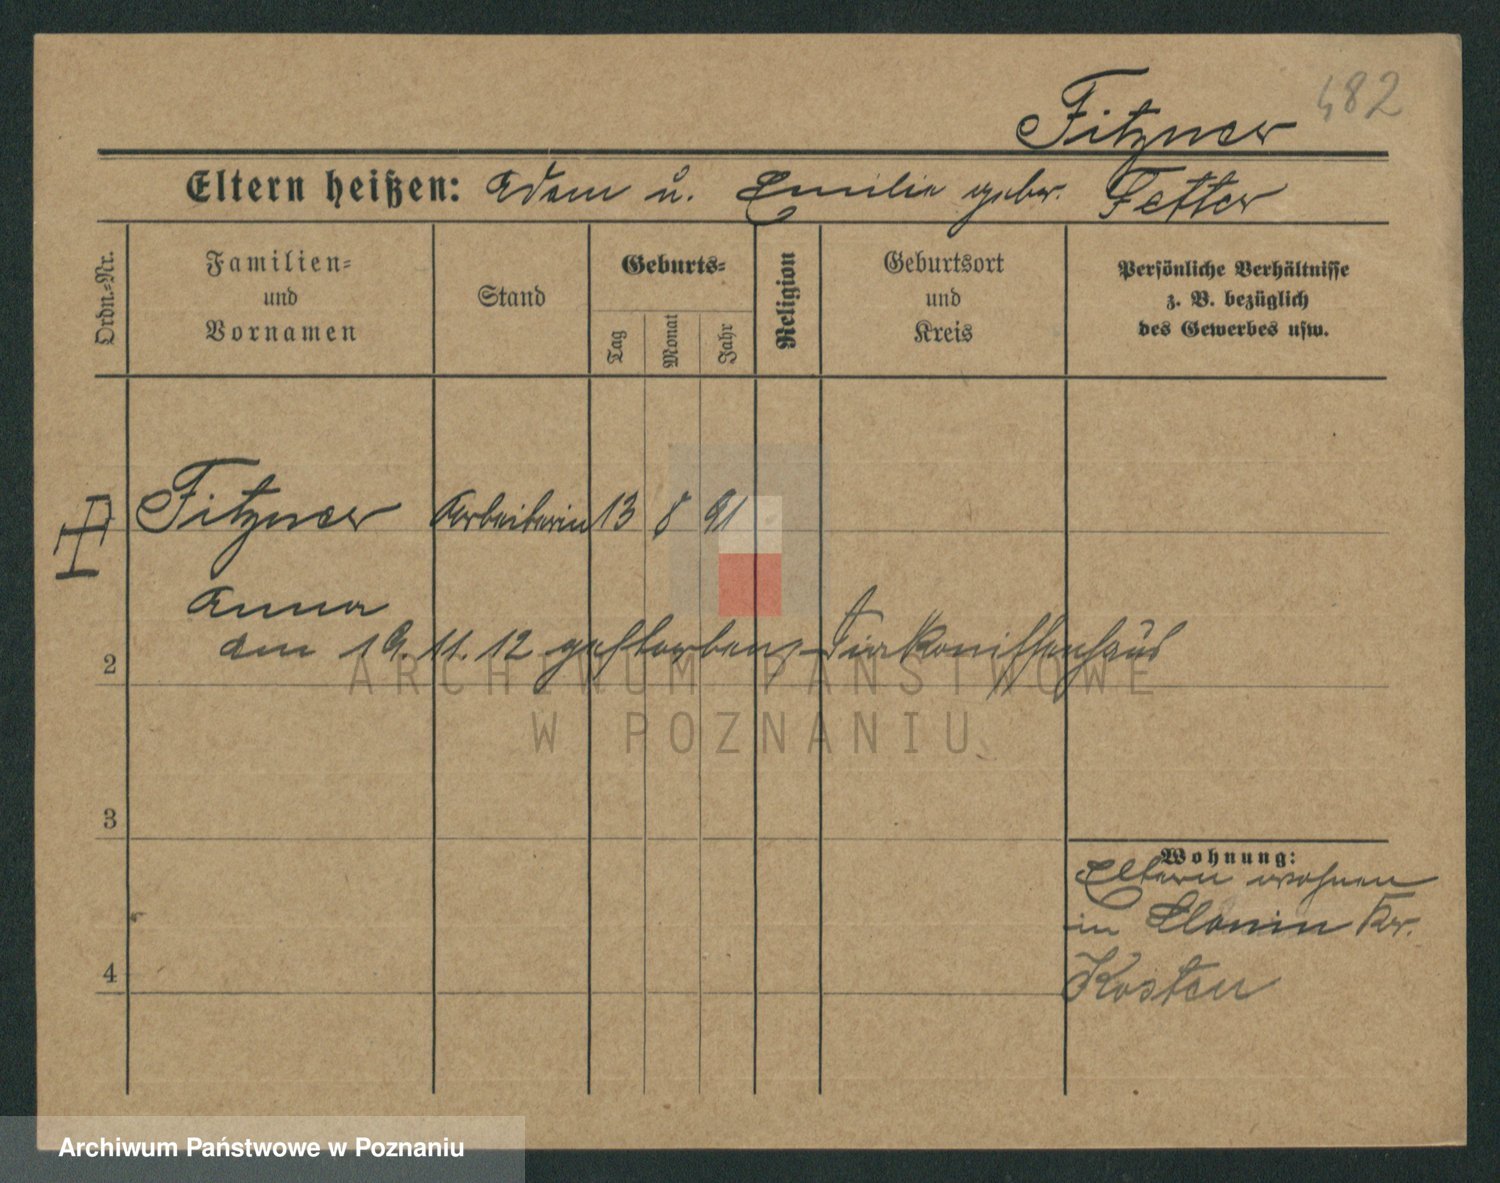 482
Fitzner
Eltern heißen: Adam u. Emilie gebr. Fetter
Ordn.-Nr.
Familien-
und
Vornamen
Stand
Geburts-
Tag
Monat
Jahr
Religion
Geburtsort
und
Kreis
Persönliche Verhältnisse
z. B. bezüglich
des Gewerbes usw.
Fitzner Arbeiterin 13 8 91
Anna
2 am 19.11.12 gestorben, Diakonissenhaus
3
Wohnung:
Eltern wohnen
in Clonin Kr.
4 Kosten
ARCHIWUM PAŃSTWOWE
W POZNANIU
Archiwum Państwowe w Poznaniu